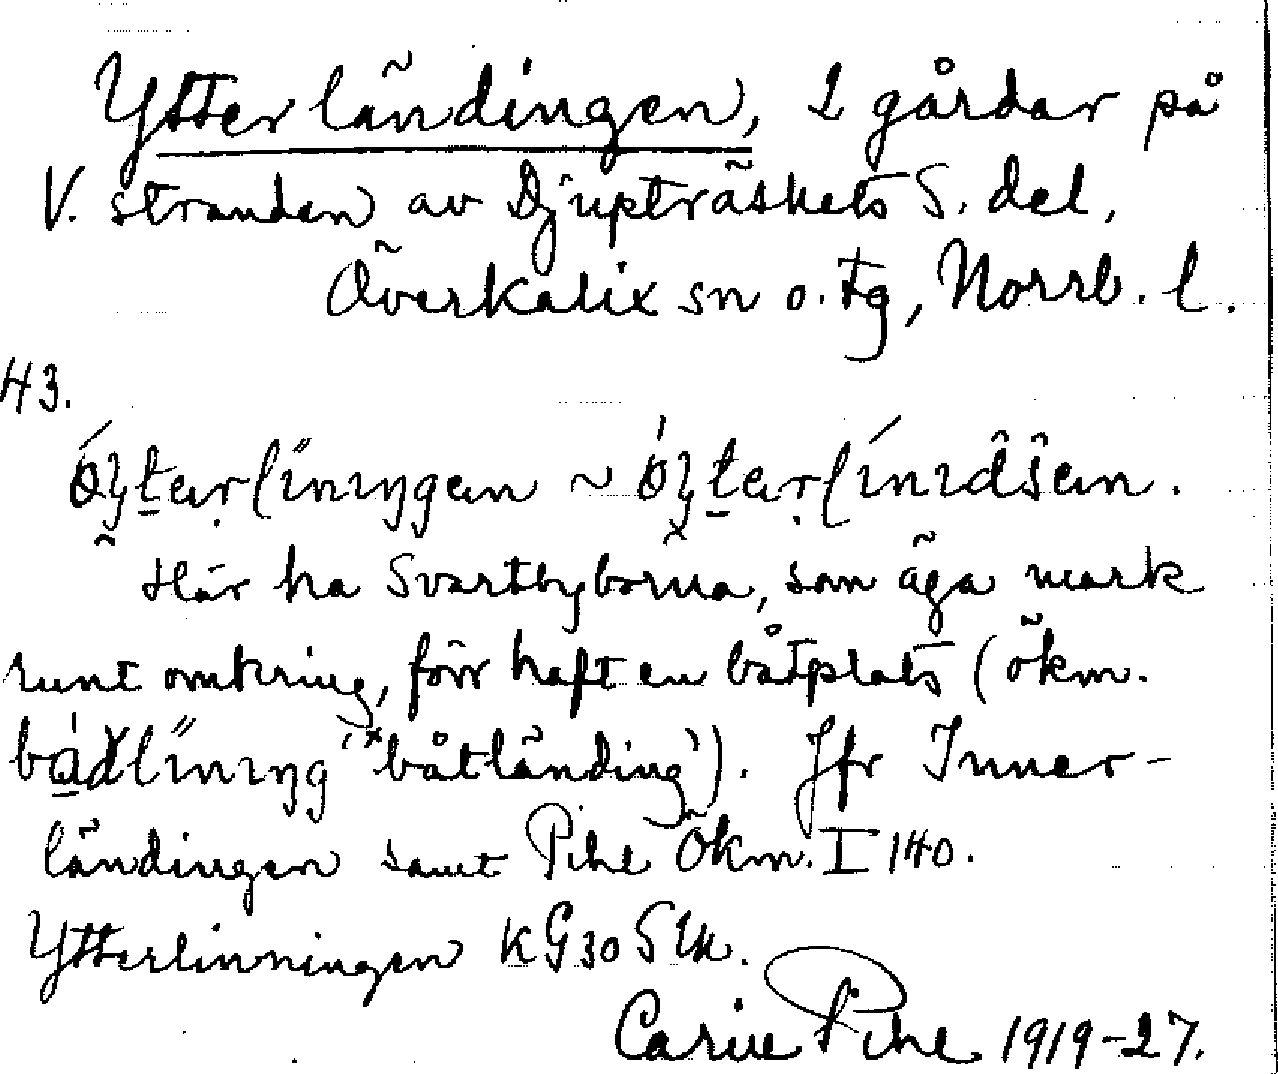 Ytterländingen, 2 gårdar på
V. stranden av Djupträskets S. del,
Överkalix sn o. tg, Norrb. l.
43.
Här ha Svartbyborna, som äga mark
runt omkring, förr haft en båtplats (ökm.
'*båtländing'). Jfr Inner-
ländingen samt Pihl Ökm. I 140.
Ytterlinningen KG30
Carin Pihl 1919-27.